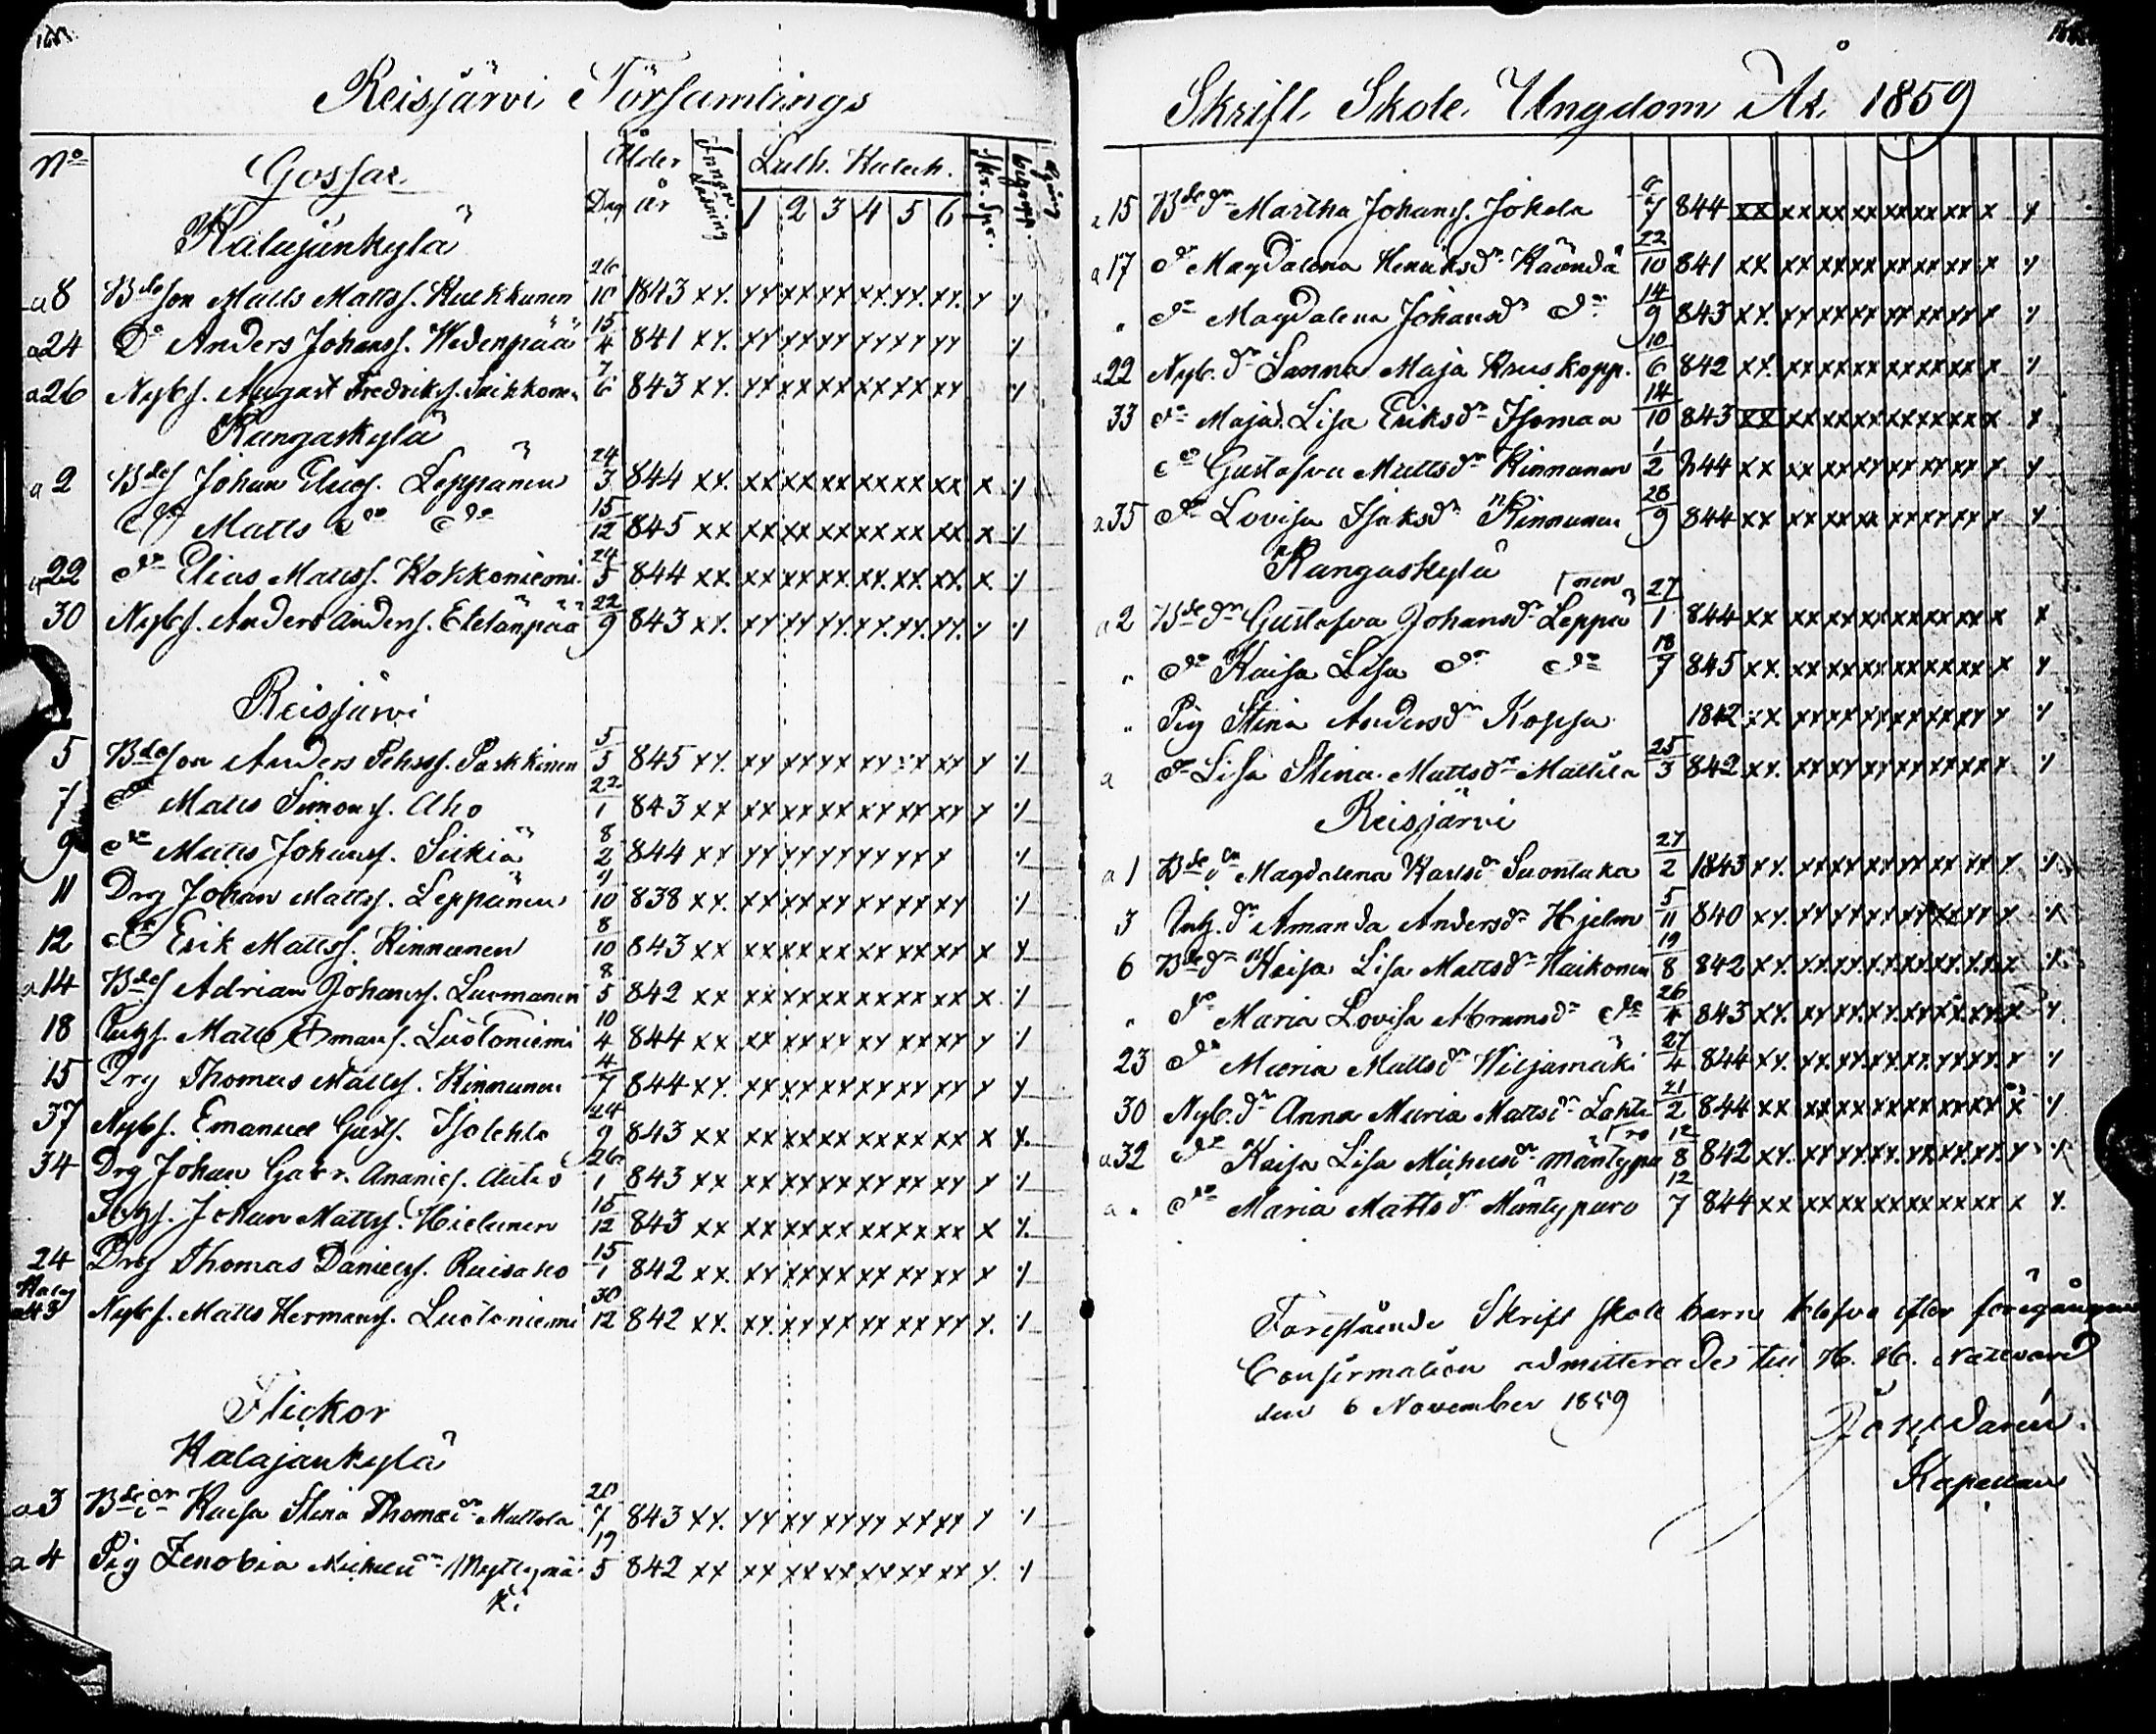 Reisjärvi Församlings
No Gossar Ålder Dag år Innan Läsning Luth. Katech. 1 2 3 4 5 6 Skr. Spr. begrepp.
Kalajänkylä
a 8 Bdeson Matts Mattss. Kukkunen 26/10 1843 xx. xx xx xx xx. xx. xx. x ·/.
a 24 Do Anders Johanss. Hedenpää 15/4 841 xx. xx xx xx xx xx xx ·/.
a 26 Nybs. August Fredrikss. 7/6 843 xx. xx xx xx xx xx xx ·/.
Kangaskylä
a 2 Bdes Johan Eliass. Leppänen 24/3 844 xx. xx xx xx xx xx xx x ·/.
do Matts do do 15/12 845 xx xx xx xx xx xx xx x ·/.
a 22 do Elias Mattss. Kokkoniemi 24/5 844 xx. xx xx xx. xx. xx. xx. x ·/.
30 Nybs. Anders Anderss. Etelänpää 22/9 843 xx. xx xx. xx. xx. xx. xx. x ·/.
Reisjärvi
5 Bdeson Anders Pehrss. Parkkinen 5/5 845 xx. xx xx xx xx xx xx x ·/.
7 do Matts Simonss. Aho 22/1 843 xx xx xx xx xx xx xx x ·/.
9 do Matts Johanss. Sikiä 8/2 844 xx xx xx xx xx xx x ·/.
11 Drg Johan Mattss. Leppänen 9/10 838 xx. xx xx xx xx xx xx ·/.
12 do Erik Mattss. Kinnunen 8/10 843 xx xx xx xx xx xx xx x x
a 14 Bdes Adrian Johanss. Luomanen 8/5 842 xx xx xx xx xx xx xx x. ·/.
18 Matts Hermanss. Luotoniemi 10/4 844 xx xx xx xx xx xx xx x ·/.
15 Drg Thomas Mattss. Kinnunen 4/7 844 xx. xx xx xx xx xx xx x x
37 Nybs. Emanuel Gusts. Isolehto 24/9 843 xx xx xx xx xx xx xx x x.
34 Drg Johan Gabr. Ananies. Autio 26/1 843 xx xx xx xx xx xx xx x ·/.
Johan Mattss. Hielunen 15/12 843 xx xx xx xx xx xx xx x ·/.
24 Drg Thomas Daniels. Ruisaho 15/1 842 xx xx xx xx xx xx xx x ·/.
Kalaj
a 43 Nybs. Matts Hermanss. Luotoniemi 30/12 842 xx. xx. xx xx xx xx xx x. ·/.
Flickor
Kalajankylä
a 3 Bdedr Kaisa Stina Thomasdr Mattola 20/7 843 xx. xx xx xx xx xx xx x ·/.
a 4 Pig Zenobia Mickelsdr Myllymä- 19/5 842 xx xx xx xx xx xx xx x. ·/.
ki
Skrift Skole Ungdom År 1859
a 15 Bdedr Martha Johans. Jokela 6/7 844 xx xx xx xx xx xx xx x x
a 17 do Magdalena Henriksdr Käändä 22/10 841 xx xx xx xx xx xx xx x ·/.
" do Magdalena Johansdr do 14/9 843 xx. xx xx xx xx xx xx x ·/.
a 22 Nyb. dr Sanna Maja Kruskopp. 10/6 842 xx. xx xx xx xx xx xx x ·/.
33 do Maja Lisa Eriksdr Isomaa 14/10 843 xx xx xx xx xx xx xx x x
do Gustafva Mattsdr Kinnunen 1/2 844 xx xx xx xx xx xx xx x x
a 35 do Lovisa Isaksdr Kinnunen 28/9 844 xx xx xx xx xx xx xx x x
Kangaskylä
nen
a 2 Bdedr Gustafva Johansdr Leppä 27/1 844 xx xx xx xx xx xx xx x x
" do Kaisa Lisa do do 18/7 845 xx. xx xx xx xx xx xx x x
" Pig Stina Andersdr Kopsa 1842 xx xx xx xx xx xx xx x ·/.
a do Lisa Stina Mattsdr Mattila 25/3 842 xx. xx xx xx xx xx xx x ·/.
Reisjärvi
a 1 Bdedr Magdalena Karlsdr Suontaka 27/2 1843 xx. xx xx xx xx xx xx x ·/.
3 dr Amanda Andersdr Hjelm 5/11 840 xx. xx xx xx xx xx xx x ·/.
6 Bdedr Kaisa Lisa Mattsdr Haikonen 19/8 842 xx. xx. xx. xx. xx. xx. xx. x ·/.
" do Maria Lovisa Abramsdr do 26/4 843 xx. xx xx. xx. xx xx. xx. x x.
23 do Maria Mattsdr Wiljamäki 27/4 844 xx. xx. xx. xx. xx. xx xx. x ·/.
30 Nyb. dr Anna Maria Mattsdr Lahti 21/2 844 xx xx xx xx xx xx xx x ·/.
ro
a 32 do Kaisa Lisa Mickelsdr Mäntypu 12/8 842 xx. xx. xx. xx. xx. xx. xx. x ·/.
a " do Maria Mattsdr Mäntypuro 12/7 844 xx xx xx xx xx xx xx x x.
Förestående Skrift skole barn blefvo efter föregången
Confirmation admitterade till H. H. Nattvard
den 6 November 1859
Kapellan